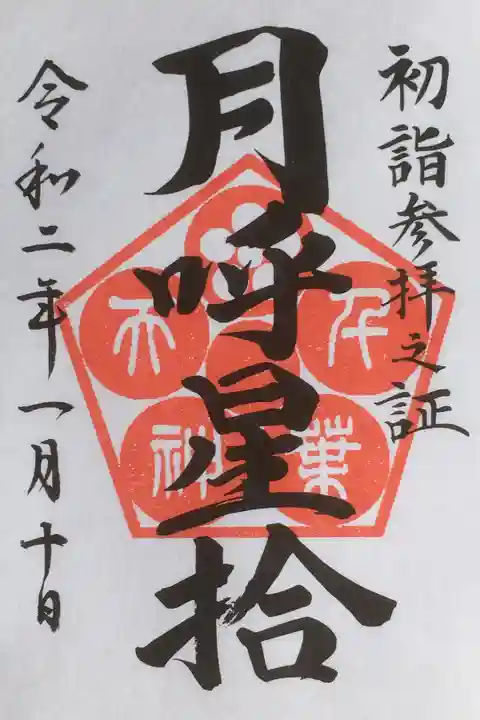 初詣参拝之証
月呼星拾
千葉
天神
令和二年一月十日